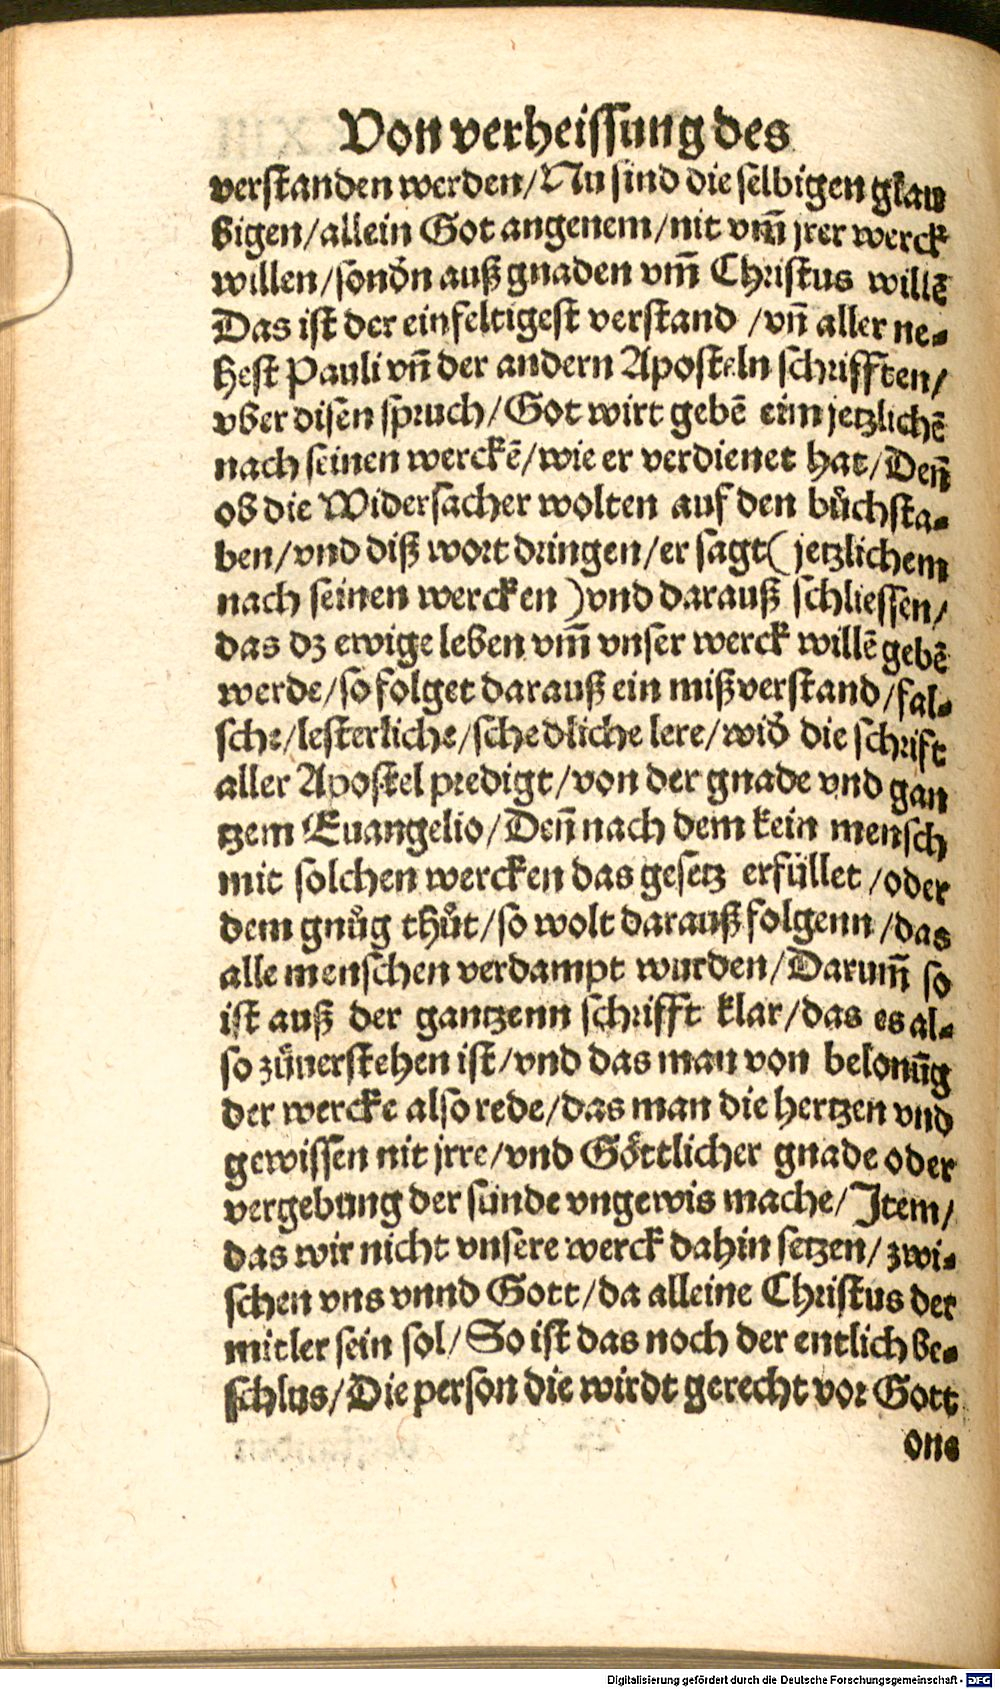 Von verheissung des
verstanden werden/Nu sind die selbigen glau
bigen/allein Got angenem/nit vm̃ jrer werck
willen/sonďn auß gnaden vm̃ Christus willẽ
Das ist der einfeltigest verstand /vñ aller ne-
hest Pauli vñ der andern Aposteln schrifften/
vber disen spruch/Got wirt gebẽ eim jetzlichẽ
nach seinen werckẽ/wie er verdienet hat/Deñ
ob die Widersacher wolten auf den bůchsta-
ben/vnd diß wort dringen/er sagt( jetzlichem
nach seinen wercken )vnd darauß schliessen/
das dz ewige leben vm̃ vnser werck willẽ gebẽ
werde/so folget darauß ein mißverstand/fal-
sche/lesterliche/schedliche lere/wiď die schrift
aller Apostel predigt/von der gnade vnd gan
tzem Euangelio/Deñ nach dem kein mensch
mit solchen wercken das gesetz erfüllet /oder
dem gnůg thůt/so wolt darauß folgenn /das
alle menschen verdampt wurden/Darum̃ so
ist auß der gantzenn schrifft klar/das es al-
so zůuerstehen ist/vnd das man von belonũg
der wercke also rede/das man die hertzen vnd
gewissen nit jrre/vnd Göttlicher gnade oder
vergebung der sunde vngewis mache/Item/
das wir nicht vnsere werck dahin setzen/ zwi-
schen vns vnnd Gott/da alleine Christus der
mitler sein sol/So ist das noch der entlich be-
schlus/Die person die wirdt gerecht vor Gott
ons
Digitalisierung gefördert durch die Deutsche Forschungsgemeinschaft - DFG